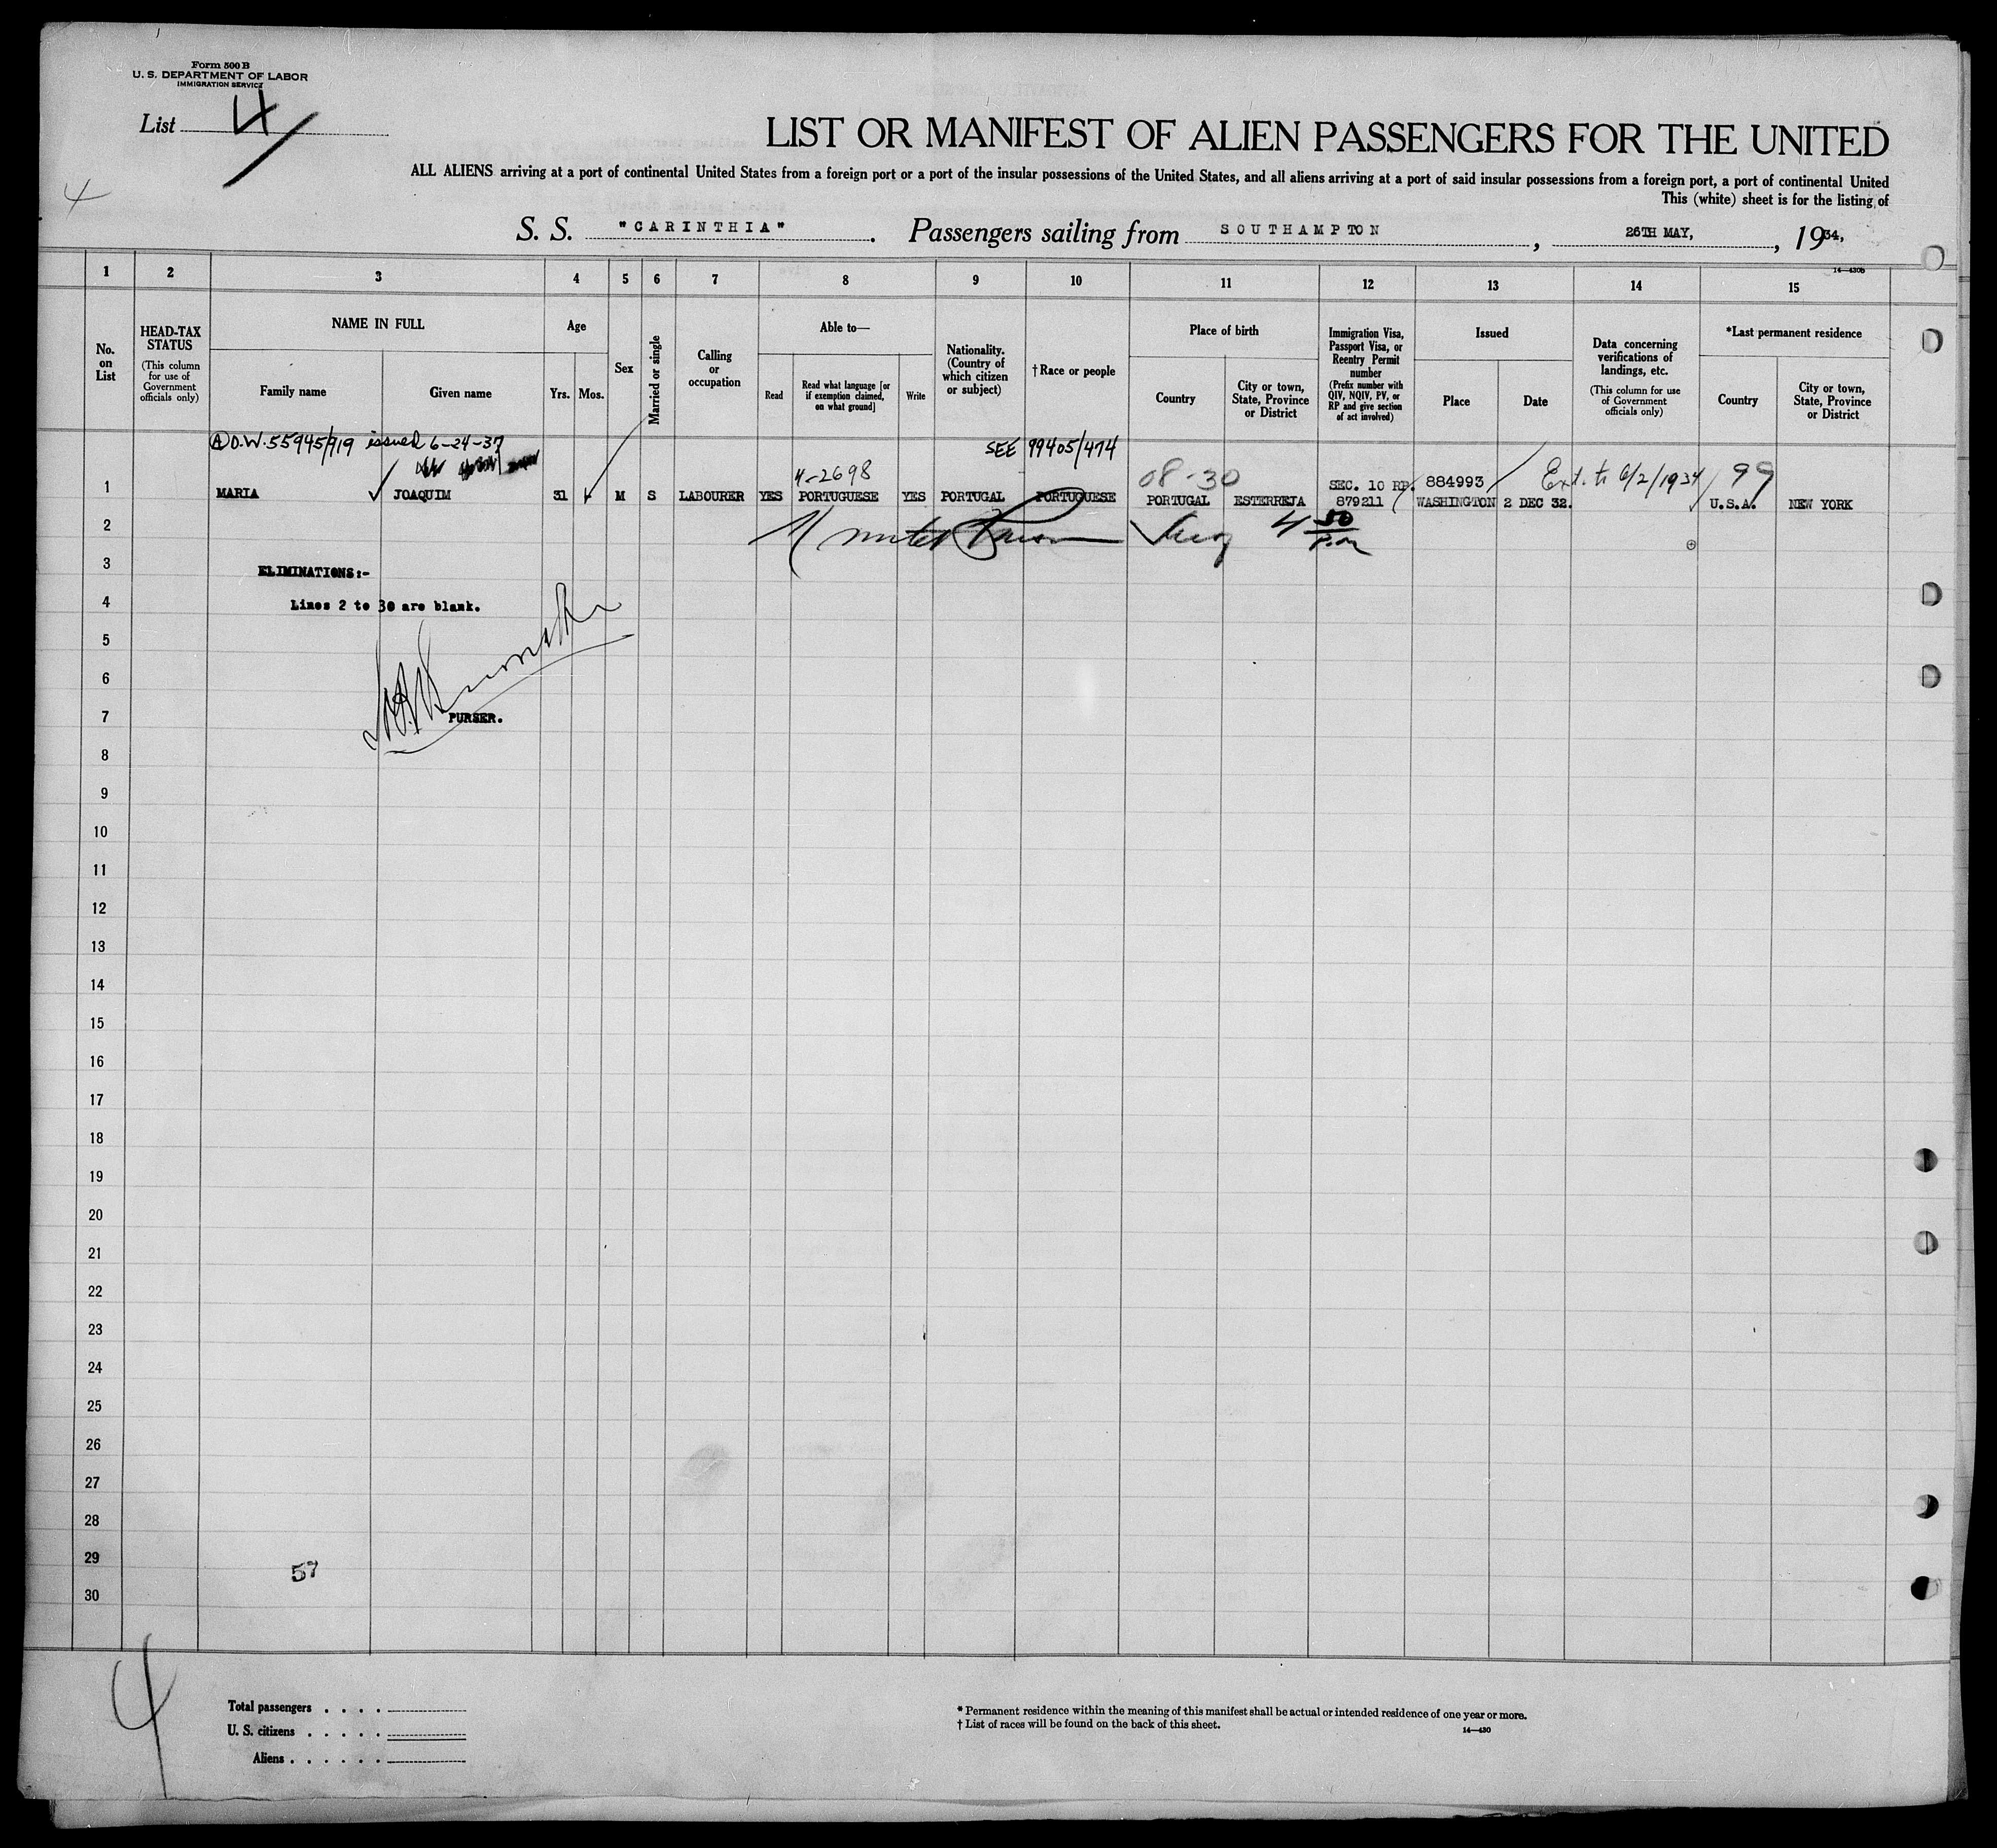 Form 500 B
U. S. DEPARTMENT OF LABOR
IMMIGRATION SERVICE
List 4
4
LIST OR MANIFEST OF ALIEN PASSENGERS FOR THE UNITED
ALL ALIENS arriving at a port of continental United States from a foreign port or a port of the insular possessions of the United States, and all aliens arriving at a port of said insular possessions from a foreign port, a port of continental United
This (white) sheet is for the listing of
S. S. "CARINTHIA". Passengers sailing from SOUTHAMPTON, 26TH MAY, , 1934,
14—430B
1 2 3 4 5 6 7 8 9 10 11 12 13 14 15
No. on List
HEAD-TAX STATUS
(This column for use of Government officials only)
NAME IN FULL
Family name
Given name
Age
Yrs.
Mos.
Sex
Married or single
Calling or occupation
Able to—
Read
Read what language [or if exemption claimed, on what ground]
Write
Nationality. (Country of which citizen or subject)
†Race or people
Place of birth
Country
City or town, State, Province or District
Immigration Visa, Passport Visa, or Reentry Permit number
(Prefix number with QIV, NQIV, PV, or RP and give section of act involved)
Issued
Place
Date
Data concerning verifications of landings, etc.
(This column for use of Government officials only)
*Last permanent residence
Country
City or town, State, Province or District
A D.W. 55945/919 issued 6-24-37
SEE 99405/474
4-2698
08-30
SEC. 10 RP. 884993 Ext. to 6/2/1934 99
1 MARIA JOAQUIM 31 M S LABOURER YES PORTUGUESE YES PORTUGAL PORTUGUESE PORTUGAL ESTERREJA 879211 WASHINGTON 2 DEC 32. U.S.A. NEW YORK
2
4 50
P.M
3 ELIMINATIONS:-
4 Lines 2 to 30 are blank.
5
6
7 PURSER.
8
9
10
11
12
13
14
15
16
17
18
19
20
21
22
23
24
25
26
27
28
29 57
30
4
Total passengers . . . .
U. S. citizens . . . . .
Aliens . . . . . .
* Permanent residence within the meaning of this manifest shall be actual or intended residence of one year or more.
† List of races will be found on the back of this sheet.
14—430